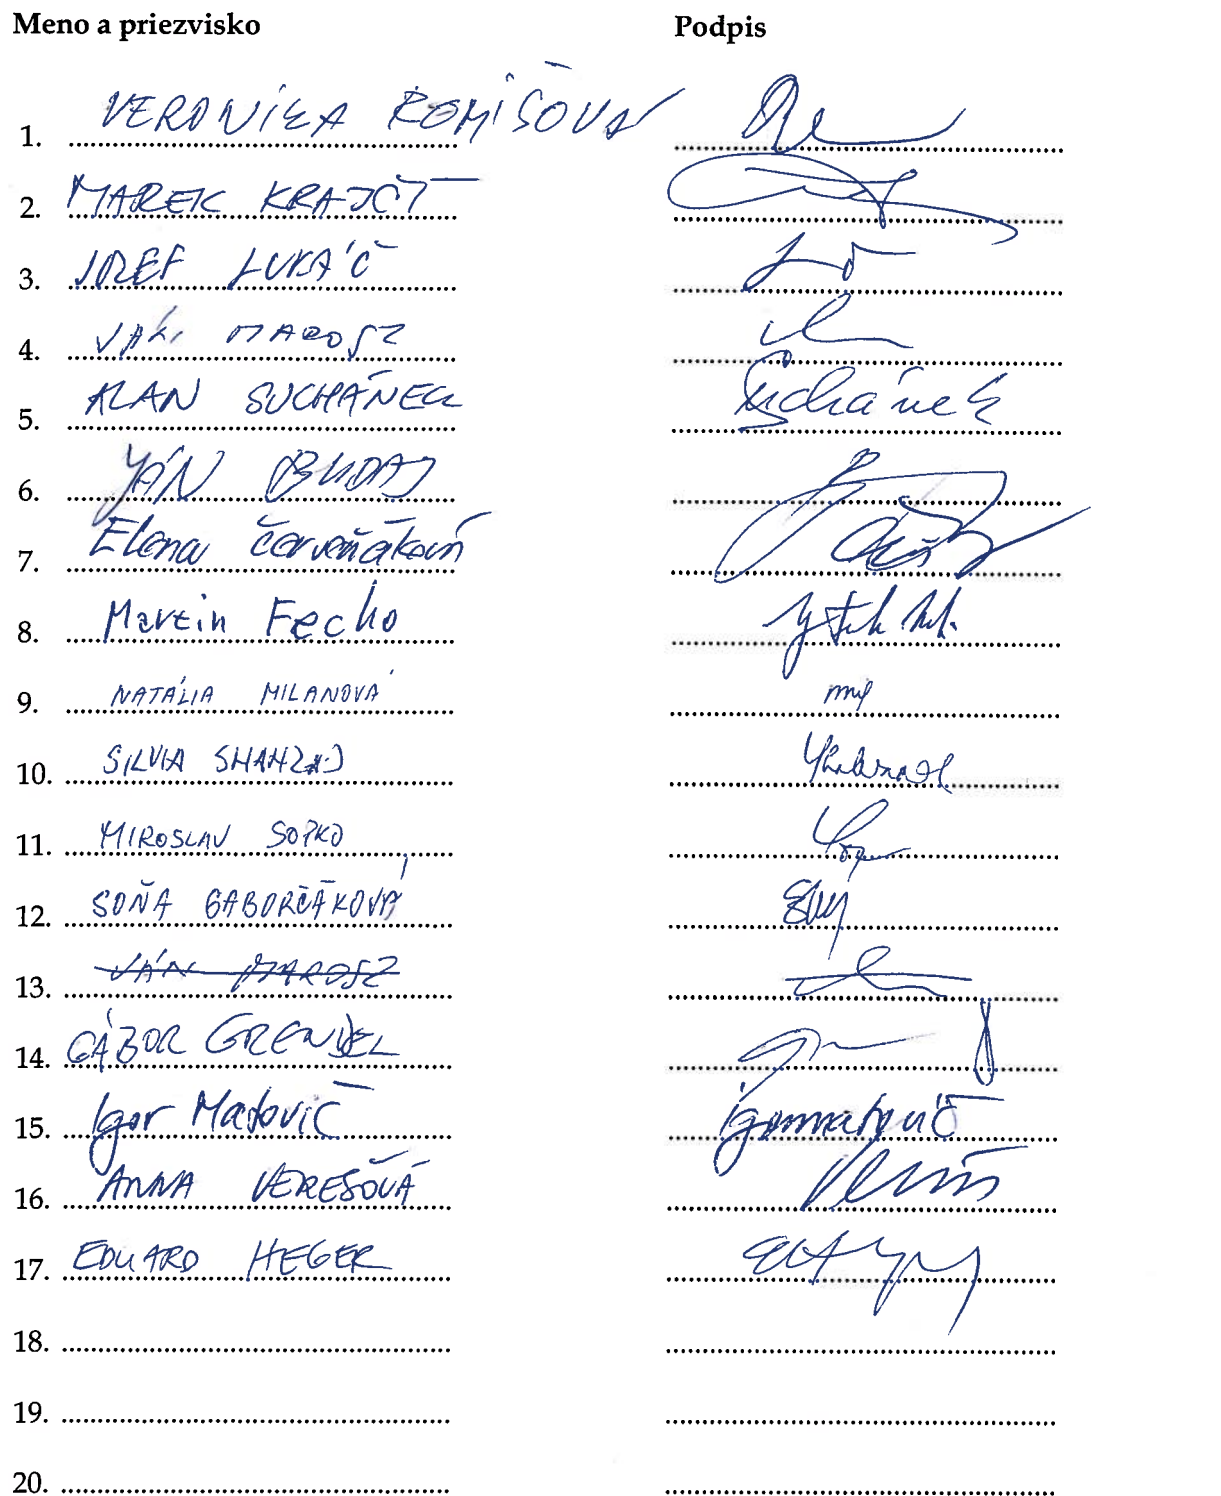 Meno a priezvisko Podpis
1. VERONIKA REMIŠOVÁ
2. MAREK KRAJČÍ
3. JOZEF LUKÁČ
4. JÁN MAROSZ
5. ALAN SUCHÁNEK Suchánek
6. JÁN BUDAJ
7. Elena Červeňáková
8. Martin Fecko
9. NATÁLIA MILANOVÁ
10. SILVIA SHAHZAD
11. MIROSLAV SOPKO
12. SOŇA GABORČÁKOVÁ
13. JÁN MAROSZ
14. GÁBOR GRENDEL
15. Igor Matovič igormatovič
16. ANNA VEREŠOVÁ
17. EDUARD HEGER
18.
19.
20.